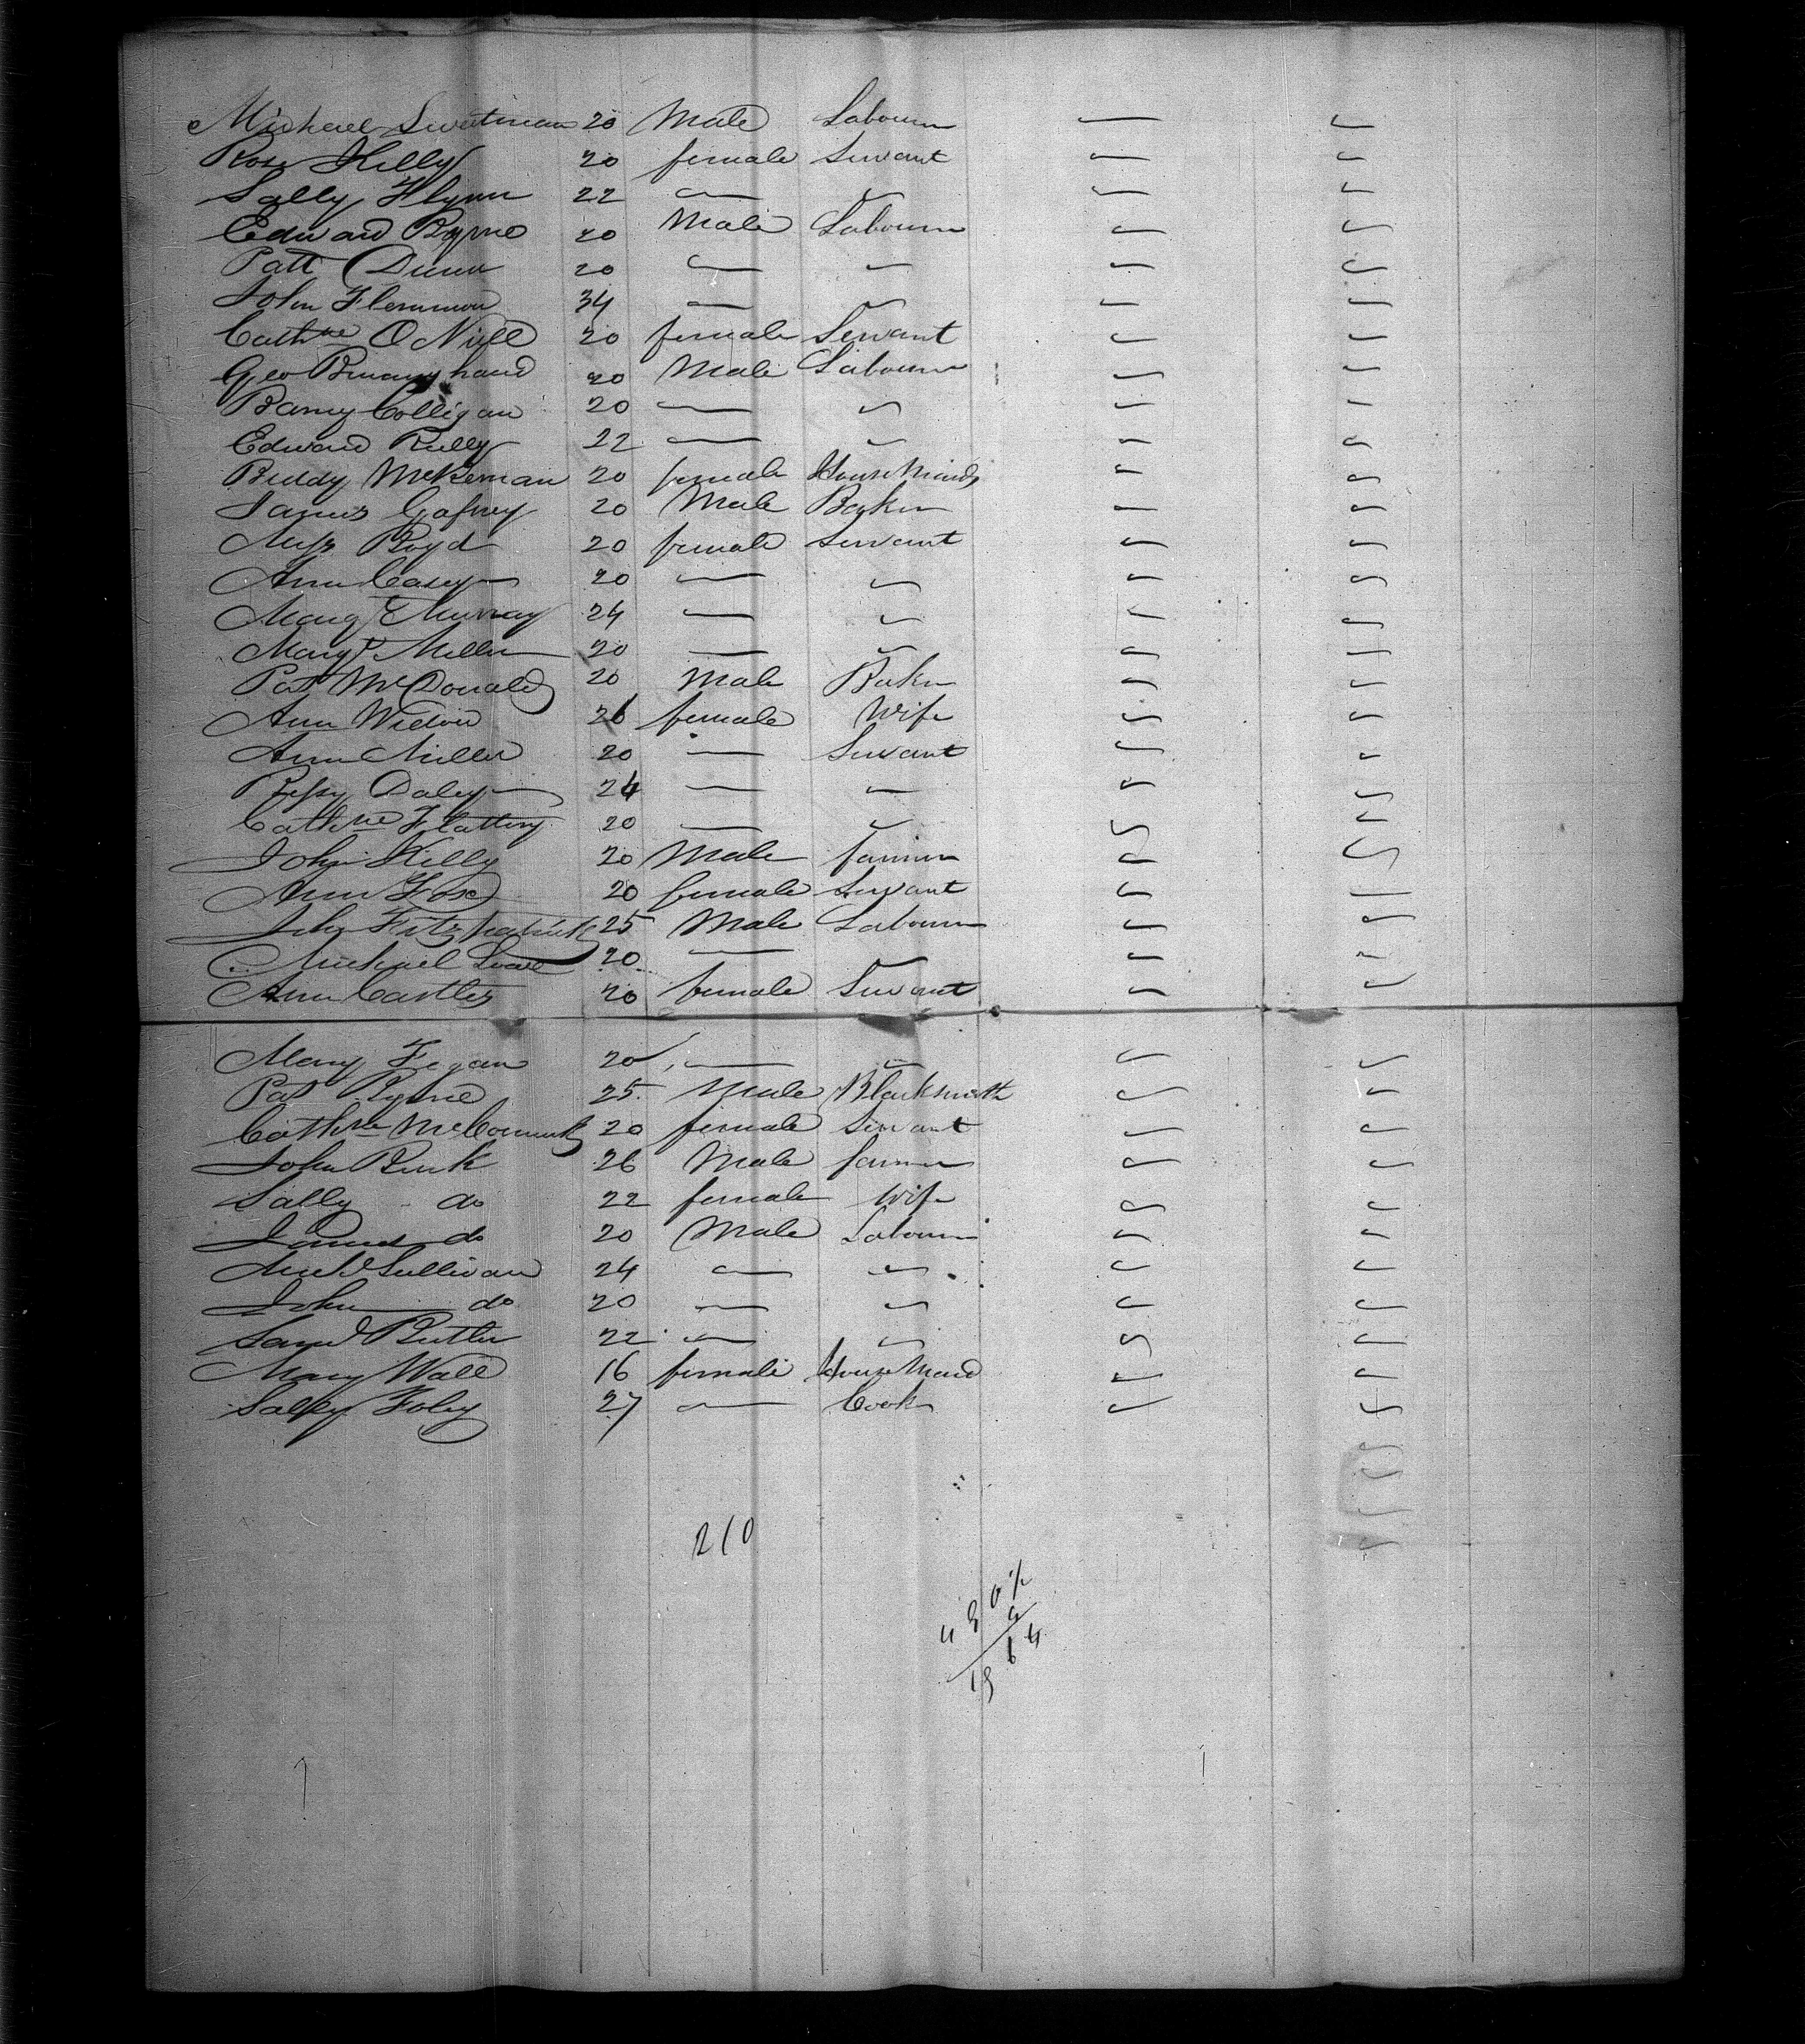 Michael Sweetman 20 Male Labourer
Rose Kelly 20 female Servant
Sally Flynn 22 — "
Edward Byrne 20 Male Labourer
Patt Dunn 20 — "
John Flemmon 34 — "
Cathne O Niell 20 female Servant
Geo 20 Male Labourer
Barny Colligan 20 — "
Edward Rielly 22 — "
Biddy McKernan 20 female House Maid
James Gafney 20 Male Baker
Miss Boyd 20 female Servant
Ann Casey 20 — "
Margt Murray 24 — "
Margt Miller 20 — "
Pat McDonald 20 Male Baker
Ann 26 female Wife
Ann Miller 20 — Servant
Bessy Daley 24 — "
Cathne Flattery 20 — "
John Kelly 20 Male farmer
Ann Fox 20 female Servant
John Fitzpatrick 25 Male Labourer
Michael 20 — "
Ann Castles 20 female Servant
Mary Fegan 20 — "
Pat Byrne 25 Male Blacksmith
Cathne McCormick 20 female Servant
John Burk 26 Male farmer
Sally do 22 female Wife
James do 20 Male Labourer
Michl Sullivan 24 — "
John do 20 — "
Saml Butler 22 — "
Mary Wall 16 female House Maid
Sally Foley 27 — Cook
210